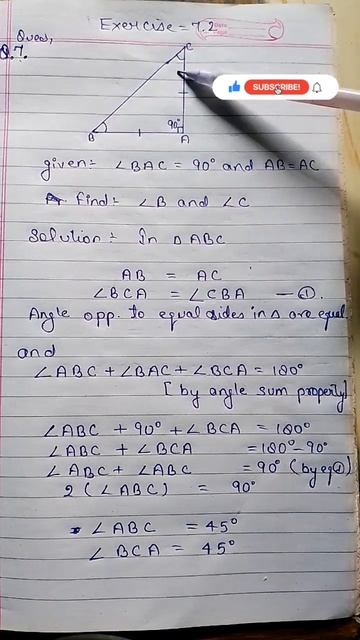 Exercise - 7.2
Date
Page
Ques,
Q.7.
C
SUBSCRIBE!
90°
B
A
given:- ∠BAC = 90° and AB = AC
find:- ∠B and ∠C
Solution:- In △ABC
AB = AC
∠BCA = ∠CBA —①.
Angle opp. to equal sides in △ are equal
and
∠ABC + ∠BAC + ∠BCA = 180°
[by angle sum property]
∠ABC + 90° + ∠BCA = 180°
∠ABC + ∠BCA = 180° - 90°
∠ABC + ∠ABC = 90° (by eq①)
2 (∠ABC) = 90°
∠ABC = 45°
∠BCA = 45°